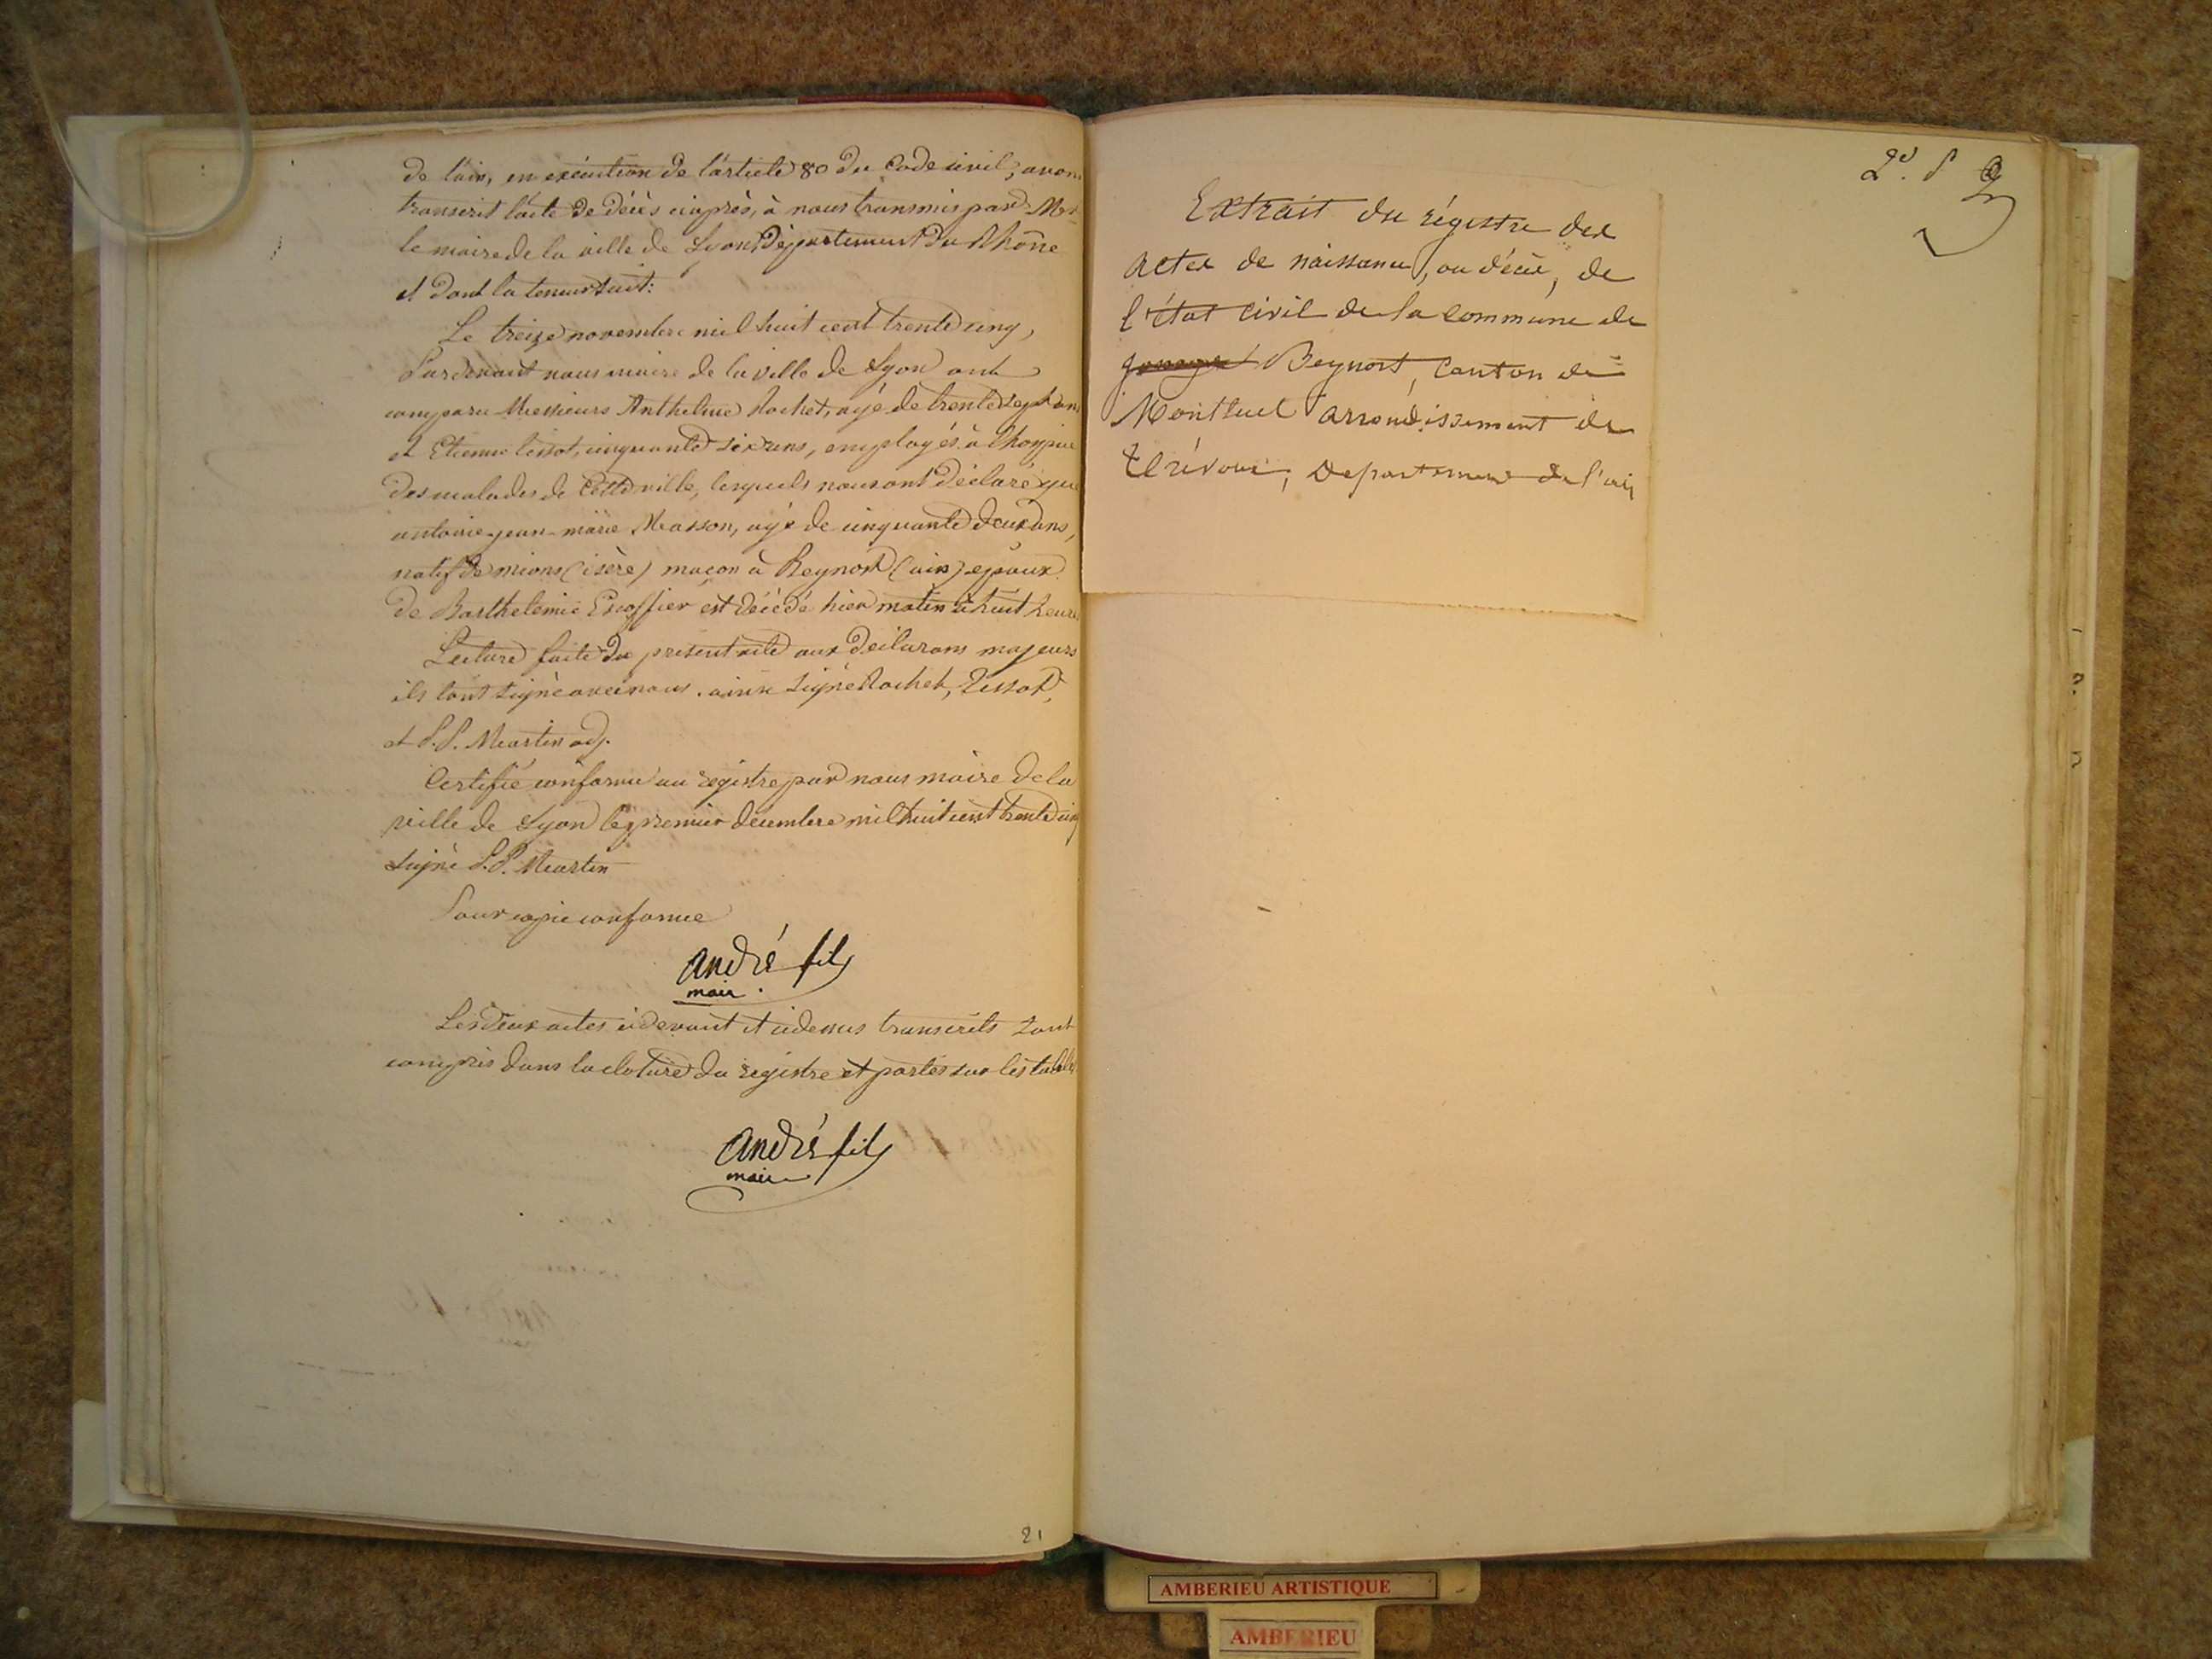 de l'ain, en exécution de l'article 80 du Code civil, avons
transcrit l'acte de décès ciaprès, à nous transmis par Mr
le maire de la ville de Lyon, Département du Rhône
et dont la teneur suit:
Le treize novembre mil huit cent trente cinq,
Pardevant nous maire de la ville de Lyon ont
comparu Messieurs Anthelme Rochet, agé de trente sept ans
et Etienne tissot, cinquante six ans, employés à l'hospice
des malades de cette ville, lesquels nous ont déclaré que
antoine-jean-marie Masson, agé de cinquante deux ans,
natif de mions (isère) maçon à Beynost (ain) époux
de Barthelemie Escoffier est décédé hier matin à huit heures
Lecture faite du présent acte aux declarans majeurs
ils l'ont signé avec nous. ainsi signé Rochet, Tissot,
et P.P. Martin adj.
Certifié conforme au registre par nous maire de la
ville de Lyon le premier decembre mil huit cent trente cinq
signé P.P. Martin
Pour copie conforme
andré fils
maire
Les deux actes cidevant et cidessus transcrits sont
compris dans la cloture du registre et portés sur les tables
andré fils
maire
21
Extrait du régistre des
actes de naissance, ou décè, de
l'état civil de la commune de
Beynost, Canton de
Montluel arrondissement de
trévoux, Departement de l'ain
AMBERIEU ARTISTIQUE
AMBERIEU